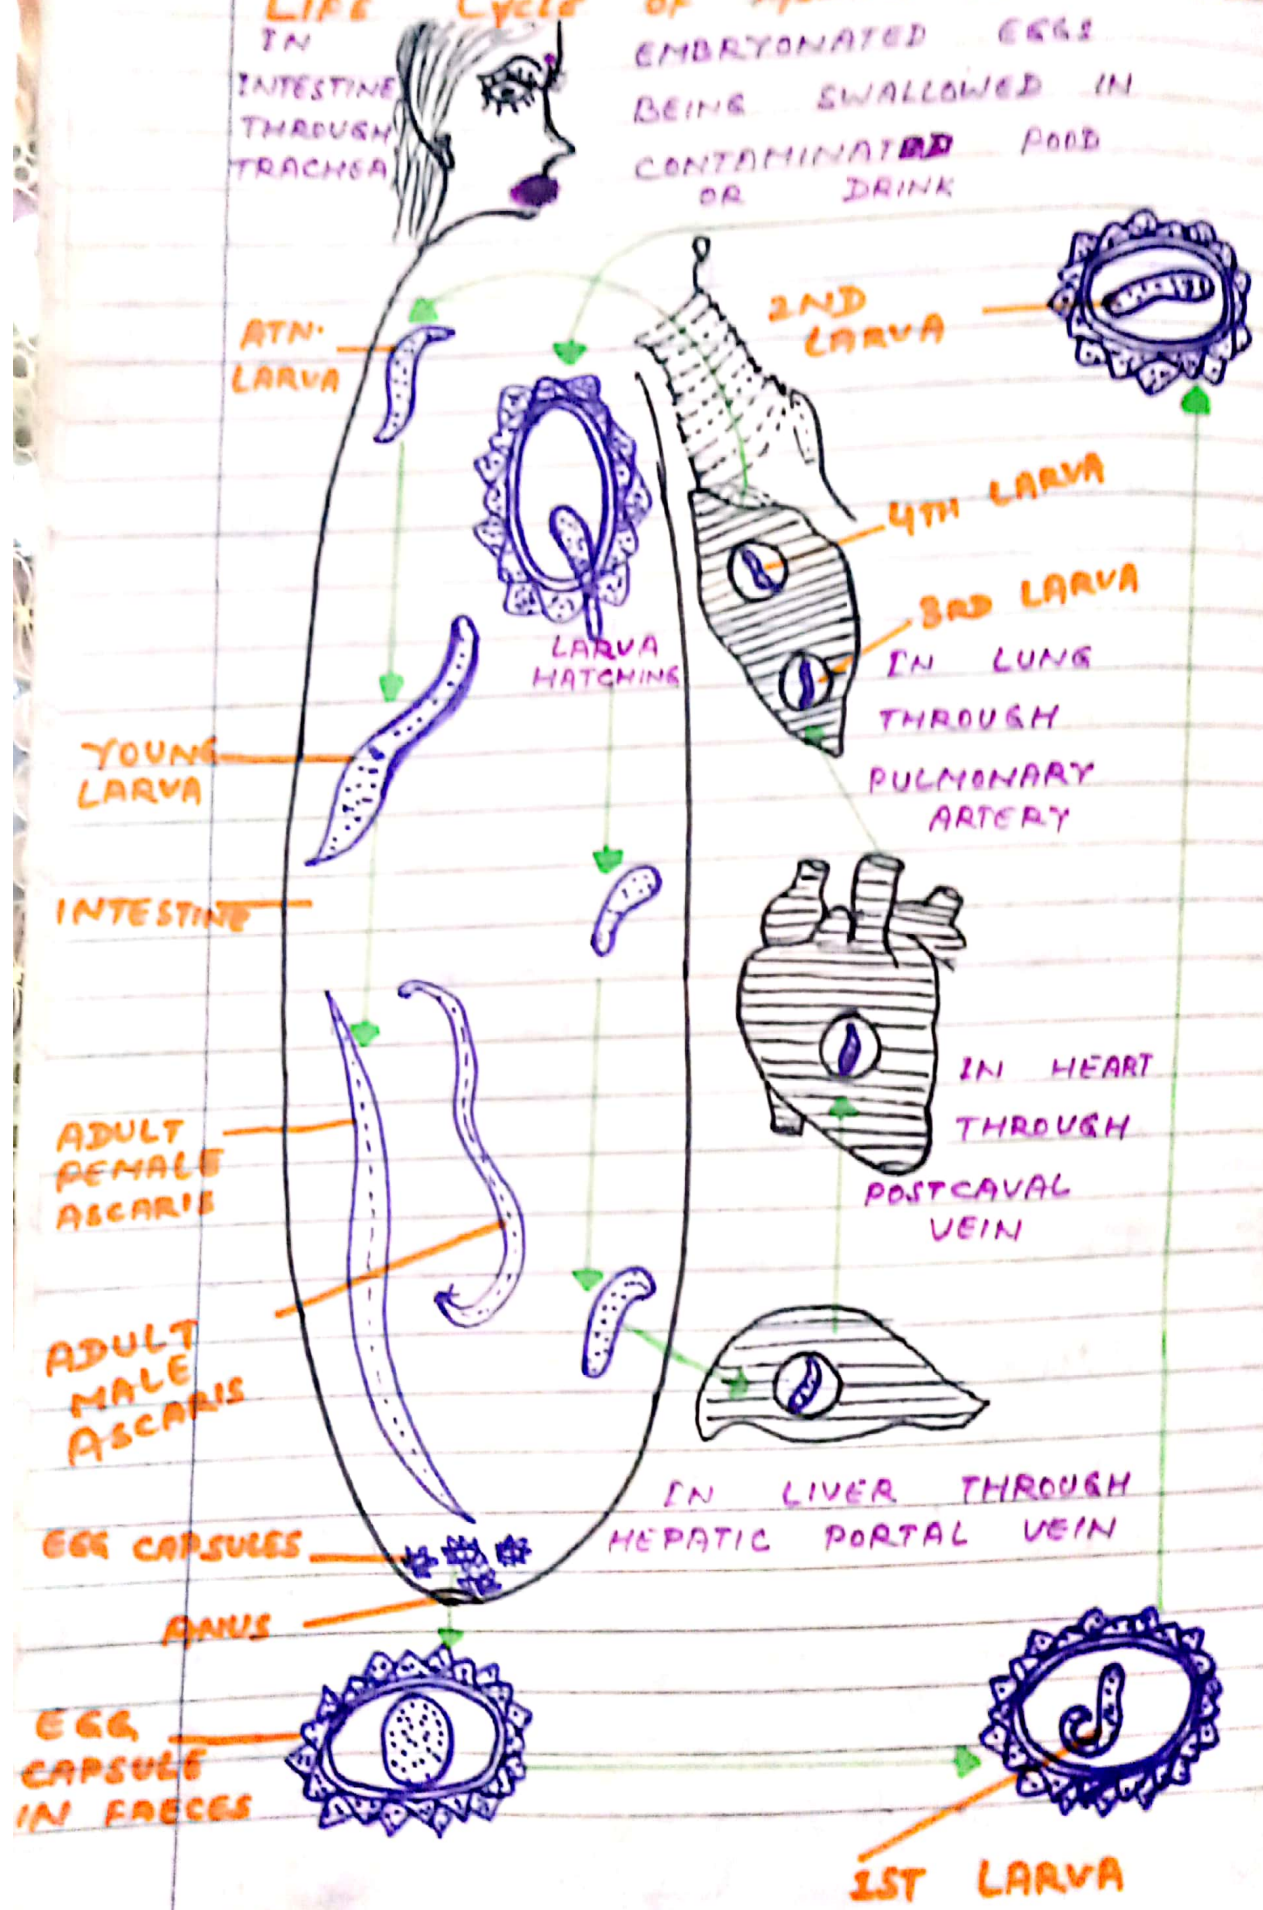 LIFE CYCLE OF
IN
INTESTINE
THROUGH
TRACHEA
EMBRYONATED EGGS
BEING SWALLOWED IN
CONTAMINATED FOOD
OR DRINK
2ND
LARVA
ATN.
LARVA
4TH LARVA
3RD LARVA
LARVA
HATCHING
IN LUNG
THROUGH
PULMONARY
ARTERY
YOUNG
LARVA
INTESTINE
IN HEART
THROUGH
POSTCAVAL
VEIN
ADULT
FEMALE
ASCARIS
ADULT
MALE
ASCARIS
IN LIVER THROUGH
HEPATIC PORTAL VEIN
EGG CAPSULES
ANUS
EGG
CAPSULE
IN FAECES
1ST LARVA